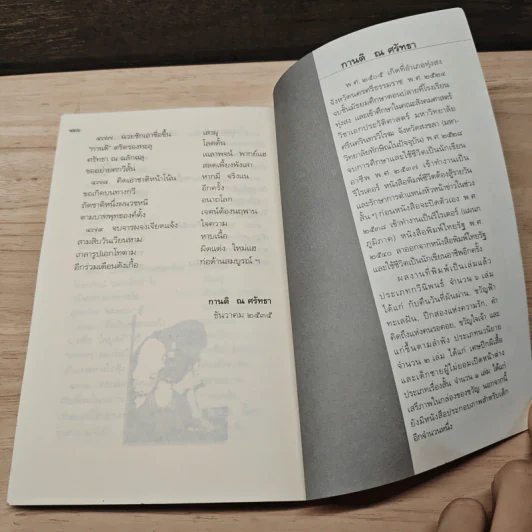 ๔๗๗ ผวยชักเอาชื่อขึ้น เสาญ
"กานติ" ตริตรองทะลุ โลดตื้น
ศรัทธา ณ ฉลักฉลุ เฉลาพจน์ พากย์แฮ
ขออย่าผดกวีสิ้น สอดเพี้ยงฟังเสา
๔๗๘ คิดเอาชาติหน้าโน้น หากมี จริงแฮ
ขอเกิดบนทางกวี อีกครั้ง
ถัดชาติหนึ่งผนวชหนี อนาถโลก
ตามบาทพุทธองค์ตั้ง เจตน์ต้องนฤพาน
๔๗๙ จบอารมจงเจียดแจ้ง ใจความ
สามสิบวันเวียนหาม ทาบเนื้อ
เกลารูปเอกโททตาม ผิดแต่ง ใหม่แฮ
อีกร่วมเดือนดังเกื้อ ก่อด้านสมบูรณ์ ฯ
กานติ ณ ศรัทธา
ธันวาคม ๒๕๓๕
กานติ ณ ศรัทธา
พ.ศ. ๒๕๐๕ เกิดที่อำเภอทุ่งสง
จังหวัดนครศรีธรรมราช พ.ศ. ๒๕๒๔
จบชั้นมัธยมศึกษาตอนปลายที่โรงเรียน
ทุ่งสง และเข้าศึกษาในคณะสังคมศาสตร์
วิชาเอกประวัติศาสตร์ มหาวิทยาลัย
ศรีนครินทรวิโรฒ จังหวัดสงขลา (มหา-
วิทยาลัยทักษิณในปัจจุบัน) พ.ศ. ๒๕๒๘
จบการศึกษาและใช้ชีวิตเป็นนักเขียน
อาชีพ พ.ศ. ๒๕๓๗ เข้าทำงานเป็น
รีไรเตอร์ หนังสือพิมพ์ชีวิตต้องสู้รายวัน
และรักษาการตำแหน่งหัวหน้าข่าวในช่วง
สั้น ๆ ก่อนหนังสือจะปิดตัวเอง พ.ศ.
๒๕๓๘ เข้าทำงานเป็นรีไรเตอร์ (แผนก
ภูมิภาค) หนังสือพิมพ์ไทยรัฐ พ.ศ.
๒๕๔๐ ลาออกจากหนังสือพิมพ์ไทยรัฐ
และใช้ชีวิตเป็นนักเขียนอาชีพอีกครั้ง
ผลงานที่พิมพ์เป็นเล่มแล้ว
ประเภทกวีนิพนธ์ จำนวน ๖ เล่ม
ได้แก่ กับคืนวันที่ผันผ่าน, ขวัญฟ้า
ทะเลฝัน, ปีกสองแห่งความรัก, คำ
คิดถึงแห่งคนรอคอย, ขวัญใจเจ้า และ
แก่ขึ้นตามลำพัง ประเภทนวนิยาย
จำนวน ๒ เล่ม ได้แก่ เศษปีกผีเสื้อ
และเด็กชายผู้ไม่ยอมเปิดหน้าต่าง
ประเภทเรื่องสั้น จำนวน ๑ เล่ม ได้แก่
เสรีภาพในกล่องของขวัญ นอกจากนี้
ยังมีหนังสือประกอบภาพสำหรับเด็ก
อีกจำนวนหนึ่ง